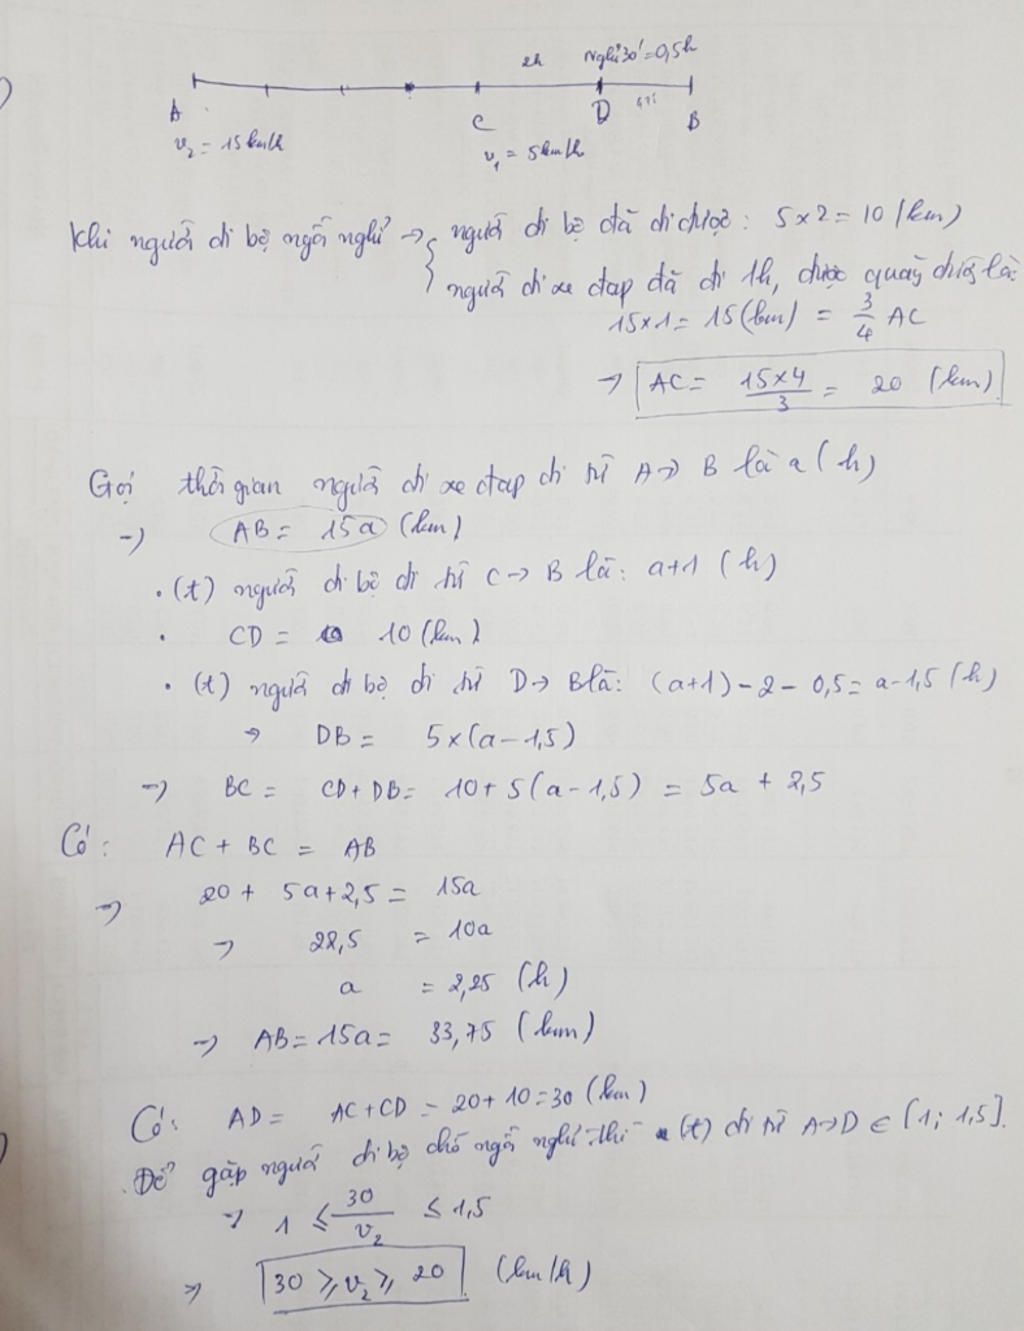 2h Nghỉ 30' = 0,5h
A C D B
v₂ = 15km/h
v₁ = 5km/h
Khi người đi bộ ngồi nghỉ → { người đi bộ đã đi được: 5 x 2 = 10 (km)
người đi xe đạp đã đi 1h, được quãng đường là:
15 x 1 = 15 (km) = 3/4 AC
→ AC = 15x4/3 = 20 (km)
Gọi thời gian người đi xe đạp đi từ A → B là a (h)
→ AB = 15a (km)
. (t) người đi bộ đi từ C → B là: a+1 (h)
. CD = 10 (km)
. (t) người đi bộ đi từ D → B là: (a+1) - 2 - 0,5 = a - 1,5 (h)
→ DB = 5x(a - 1,5)
→ BC = CD + DB = 10 + 5(a - 1,5) = 5a + 2,5
Có: AC + BC = AB
→ 20 + 5a + 2,5 = 15a
→ 22,5 = 10a
a = 2,25 (h)
→ AB = 15a = 33,75 (km)
Có: AD = AC + CD = 20 + 10 = 30 (km)
Để gặp người đi bộ chỗ ngồi nghỉ thì (t) đi từ A → D ∈ [1; 1,5].
→ 1 ≤ 30/v₂ ≤ 1,5
→ 30 ≥ v₂ ≥ 20 (km/h)